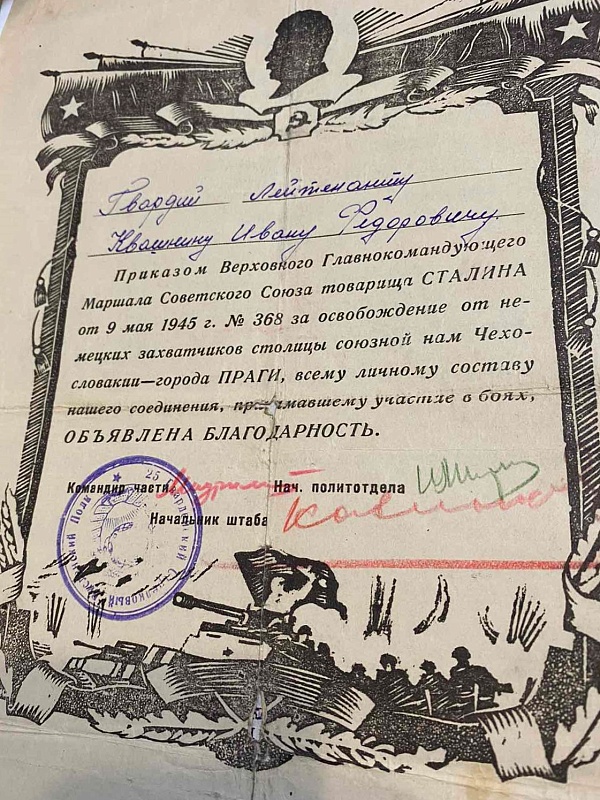 Гвардии лейтенанту
Квашнину Ивану Фёдоровичу
Приказом Верховного Главнокомандующего
Маршала Советского Союза товарища СТАЛИНА
от 9 мая 1945 г. № 368 за освобождение от не-
мецких захватчиков столицы союзной нам Чехо-
словакии—города ПРАГИ, всему личному составу
нашего соединения, принимавшему участие в боях,
ОБЪЯВЛЕНА БЛАГОДАРНОСТЬ.
Командир части
Нач. политотдела
Начальник штаба
25 Гвардейский Стрелковый Полк